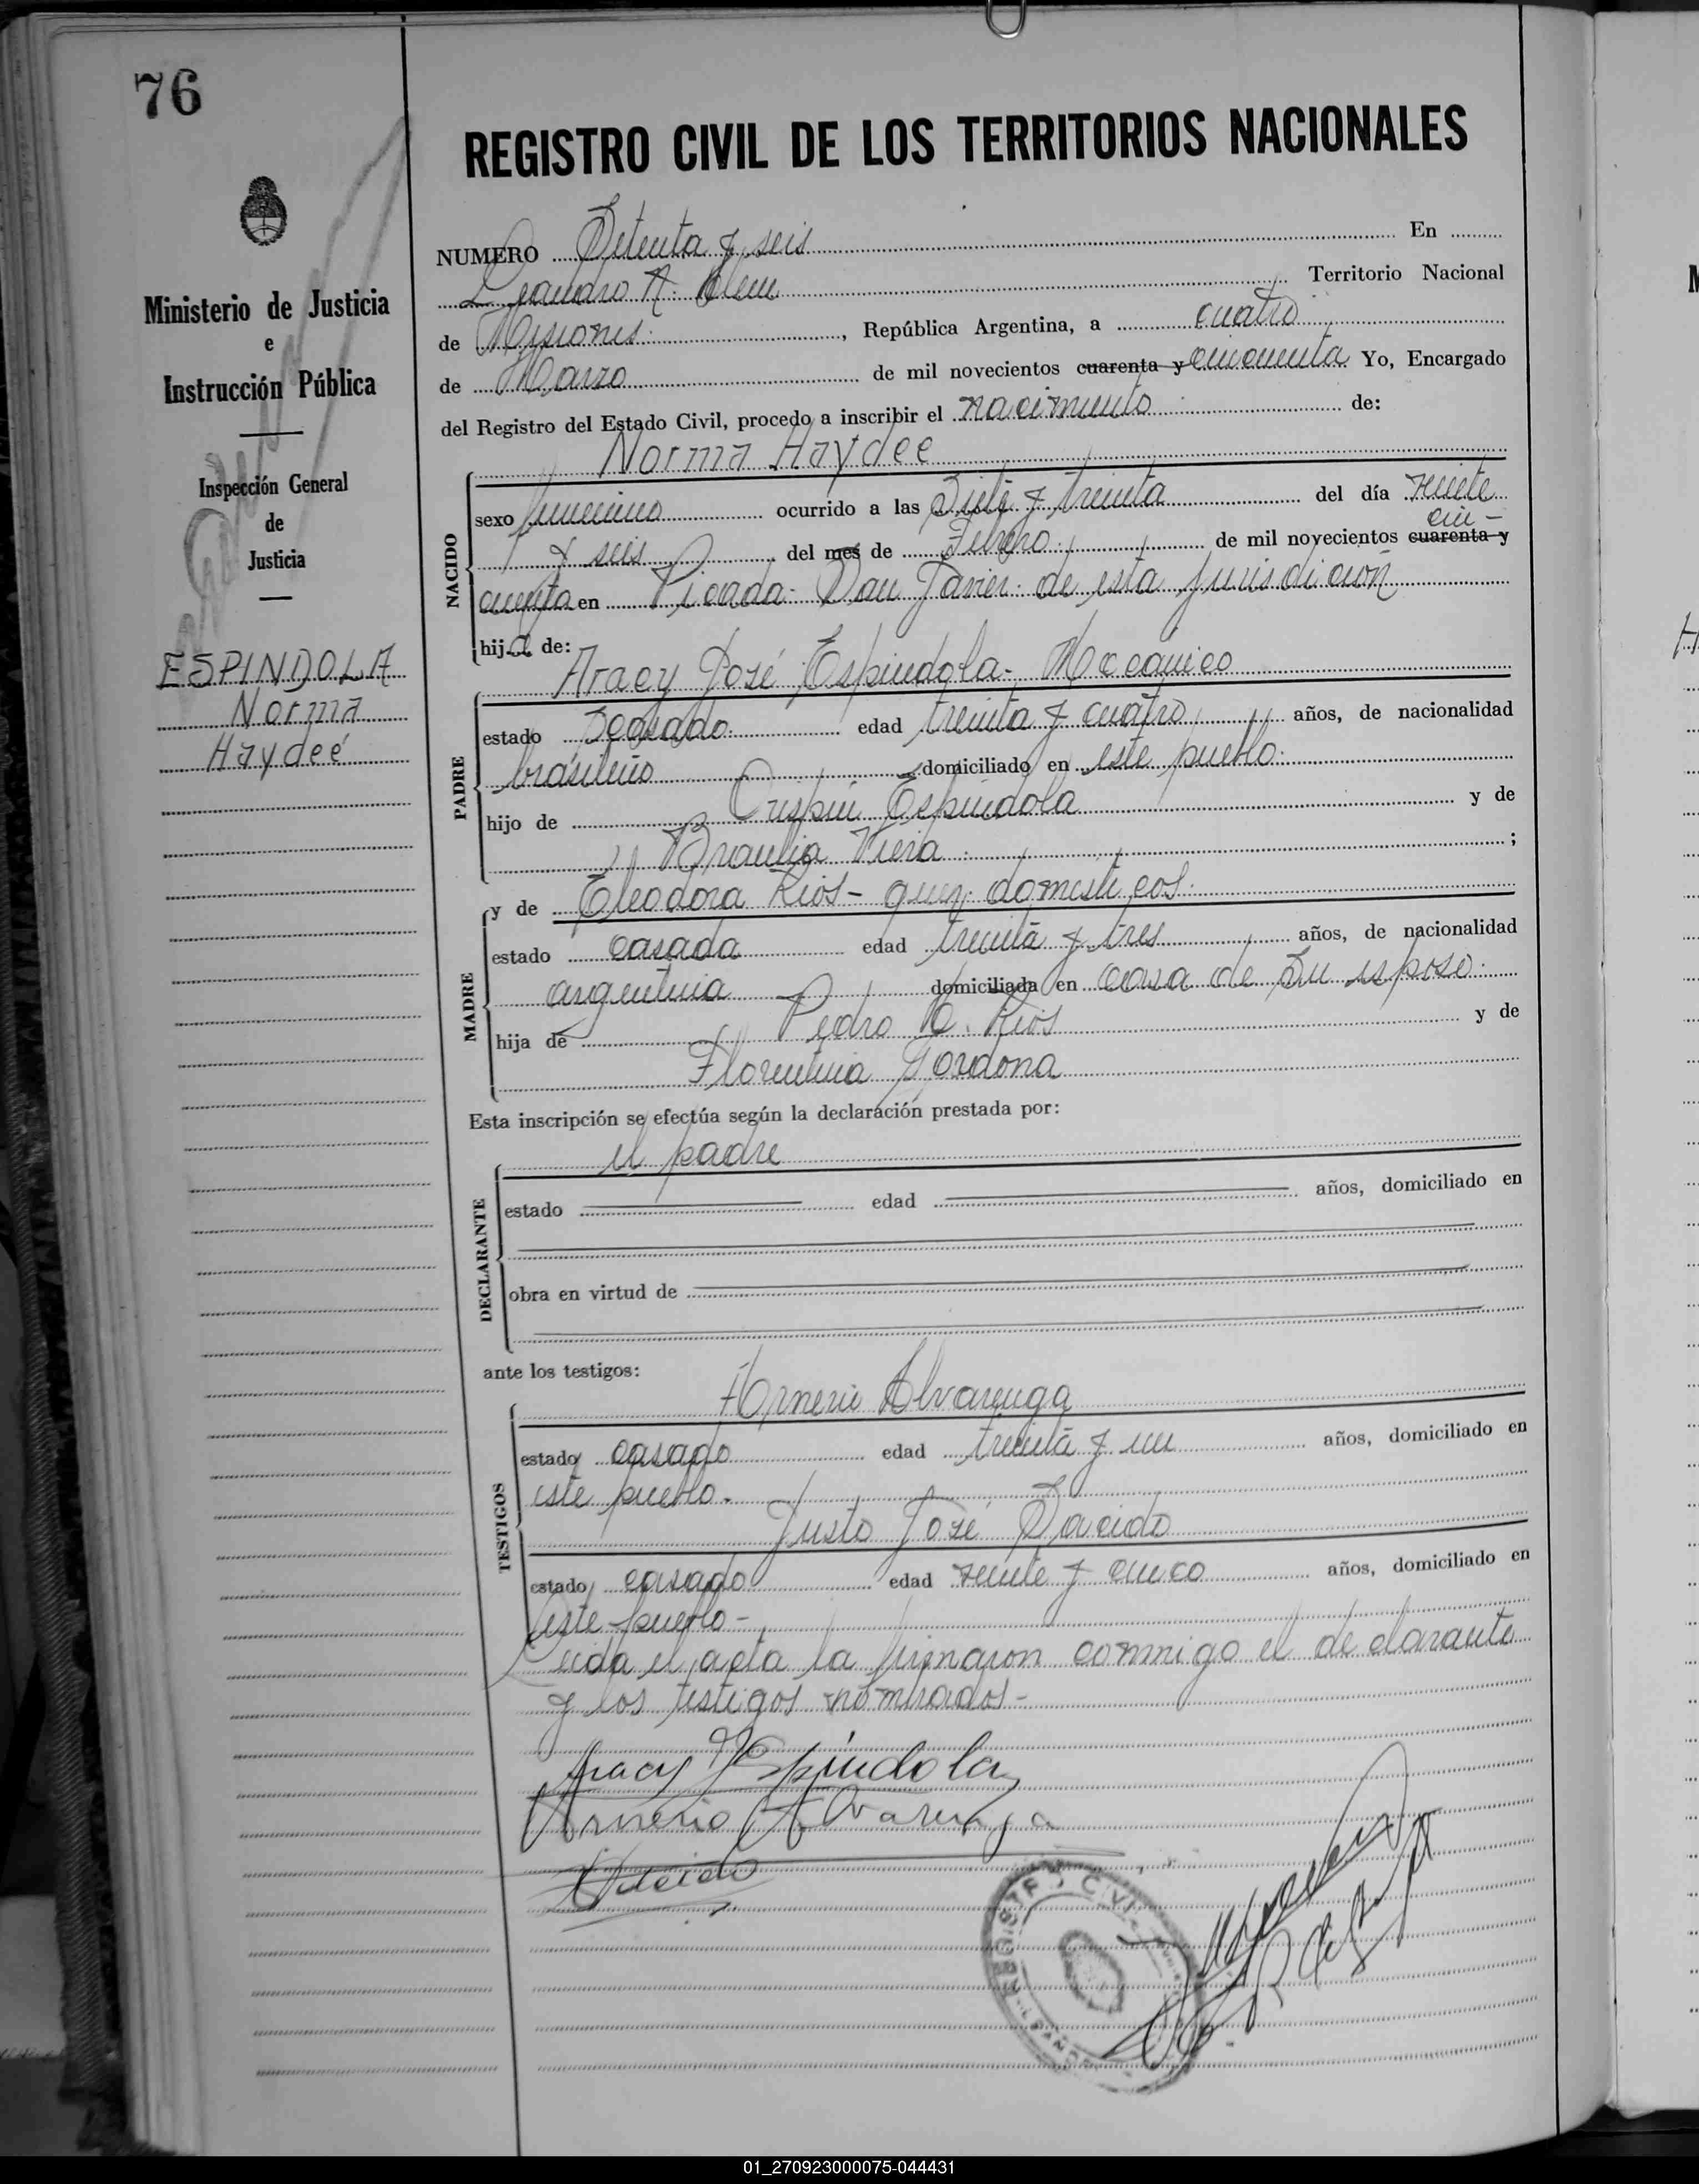 76
REGISTRO CIVIL DE LOS TERRITORIOS NACIONALES
Ministerio de Justicia
e
Instrucción Pública
Inspección General
de
Justicia
ESPINDOLA
Norma
Haydeé
NUMERO Setenta y seis En
Leandro N. Alem Territorio Nacional
de Misiones. , República Argentina, a cuatro
de Marzo de mil novecientos cuarenta y cincuenta Yo, Encargado
del Registro del Estado Civil, procedo a inscribir el nacimiento de:
Norma Haydee
NACIDO
sexo femenino ocurrido a las Siete y treinta del día veinte
y seis del mes de Febrero. de mil novecientos cuarenta y cin-
cuenta en Picada San Javier de esta jurisdicción
hija de:
Aracy José Espindola- Mecanico
PADRE
estado casado. edad treinta y cuatro años, de nacionalidad
brasileño domiciliado en este pueblo.
hijo de Crispin Espindola y de
Braulia Viera ;
MADRE
y de Eleodora Rios- domesticos.
estado casada edad treinta y tres años, de nacionalidad
argentina domiciliada en casa de su esposo.
hija de Pedro Rios y de
Florentina
Esta inscripción se efectúa según la declaración prestada por:
el padre
DECLARANTE
estado edad años, domiciliado en
obra en virtud de
ante los testigos:
Alvarenga
TESTIGOS
estado casado edad treinta y un años, domiciliado en
este pueblo.
Justo José
estado casado edad veinte y cinco años, domiciliado en
este pueblo-
Leida el acta la firmaron conmigo el declarante
y los testigos nombrados-
Aracy Espindola
Alvarenga
REGISTRO CIVIL
01_270923000075-044431